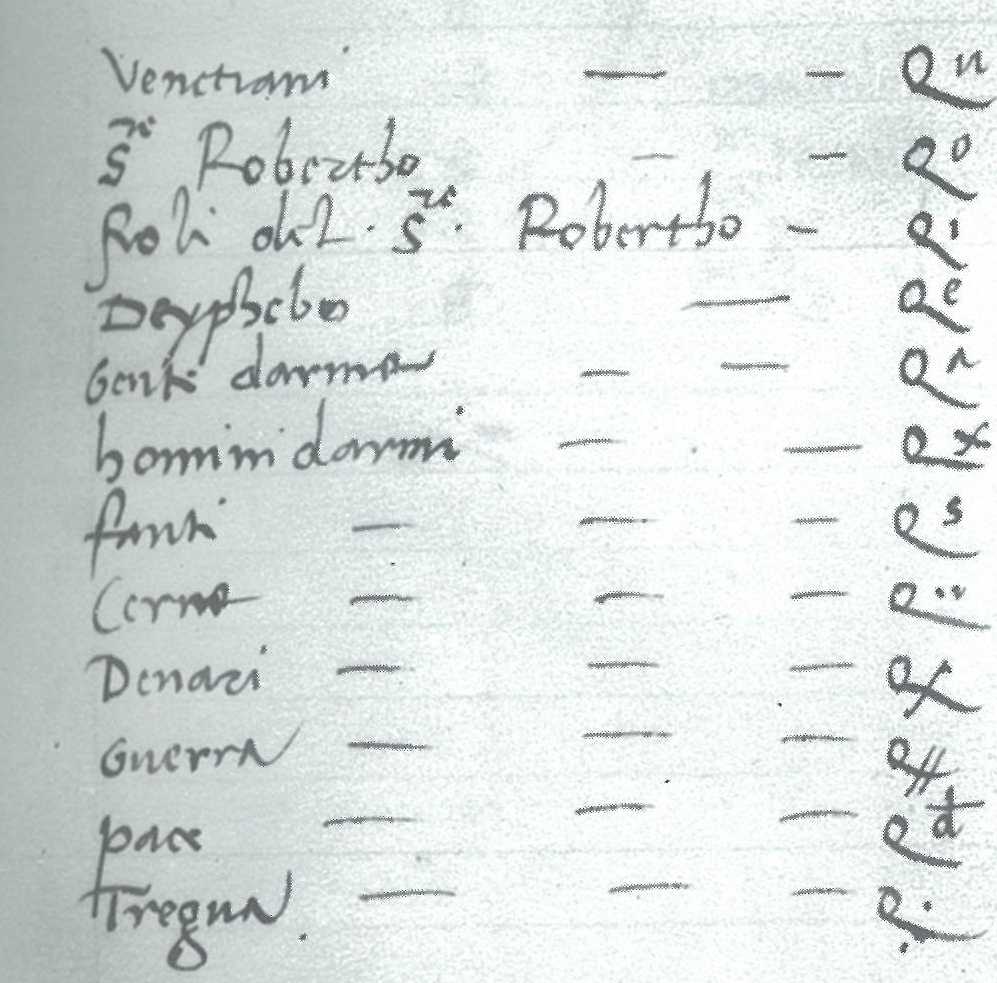 Venetiani — — R n
S.re Robertho — — R o
figlioli del S.re Robertho — R i
Deyphebo — R e
Gente darme — — R
homini darmi — — R x
fanti — — — R s
Cerne — — — R
Denari — — — R
Guerra — — — R
pace — — — R d
Tregua — — — R